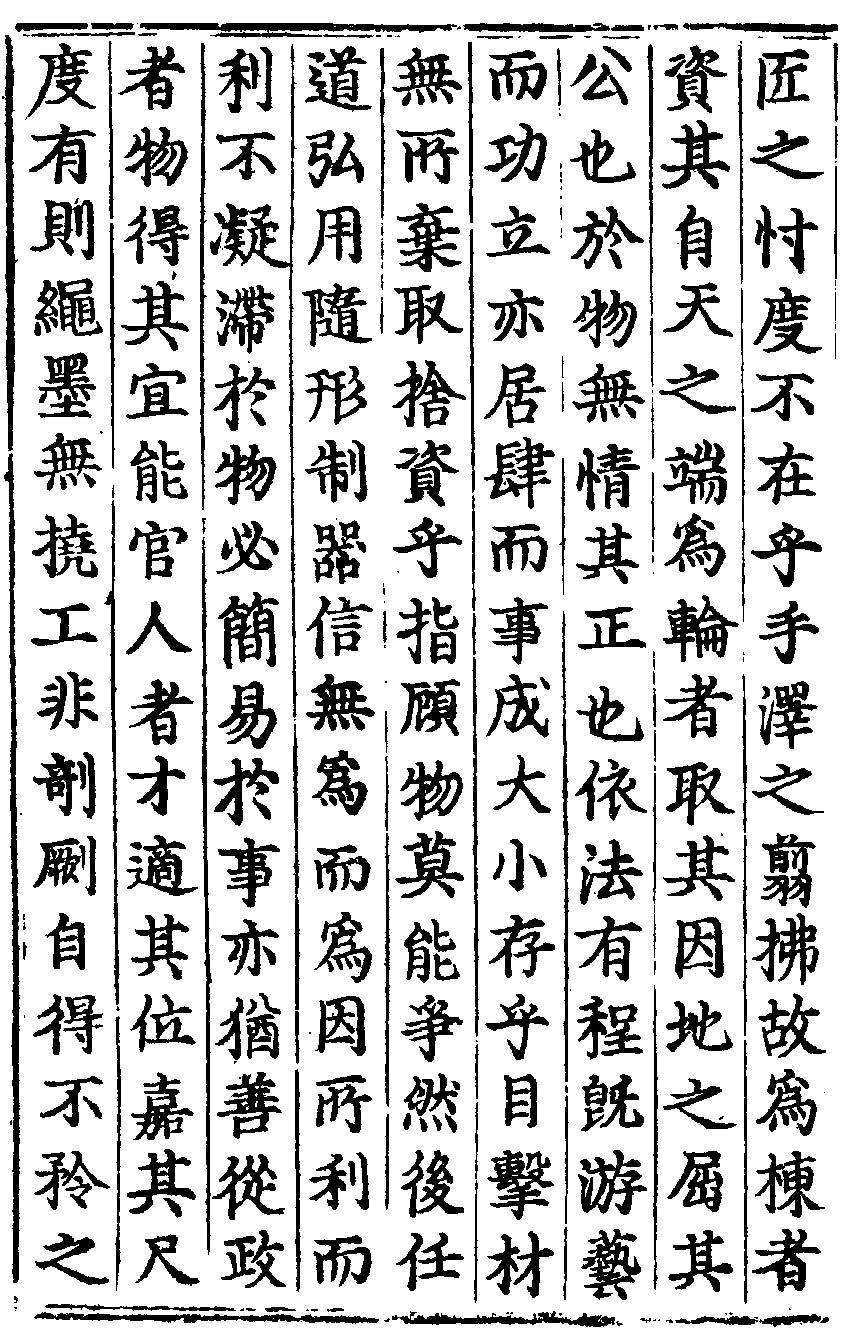 匠之忖度不在乎手澤之翦拂故爲棟者
資其自天之端爲輪者取其因地之屈其
公也於物無情其正也依法有程旣游藝
而功立亦居肆而事成大小存乎目擊材
無所棄取捨資乎指顧物莫能爭然後任
道弘用隨形制器信無爲而爲因所利而
利不凝滯於物必簡易於事亦猶善從政
者物得其宜能官人者才適其位嘉其尺
度有則繩墨無撓工非剞劂自得不矜之